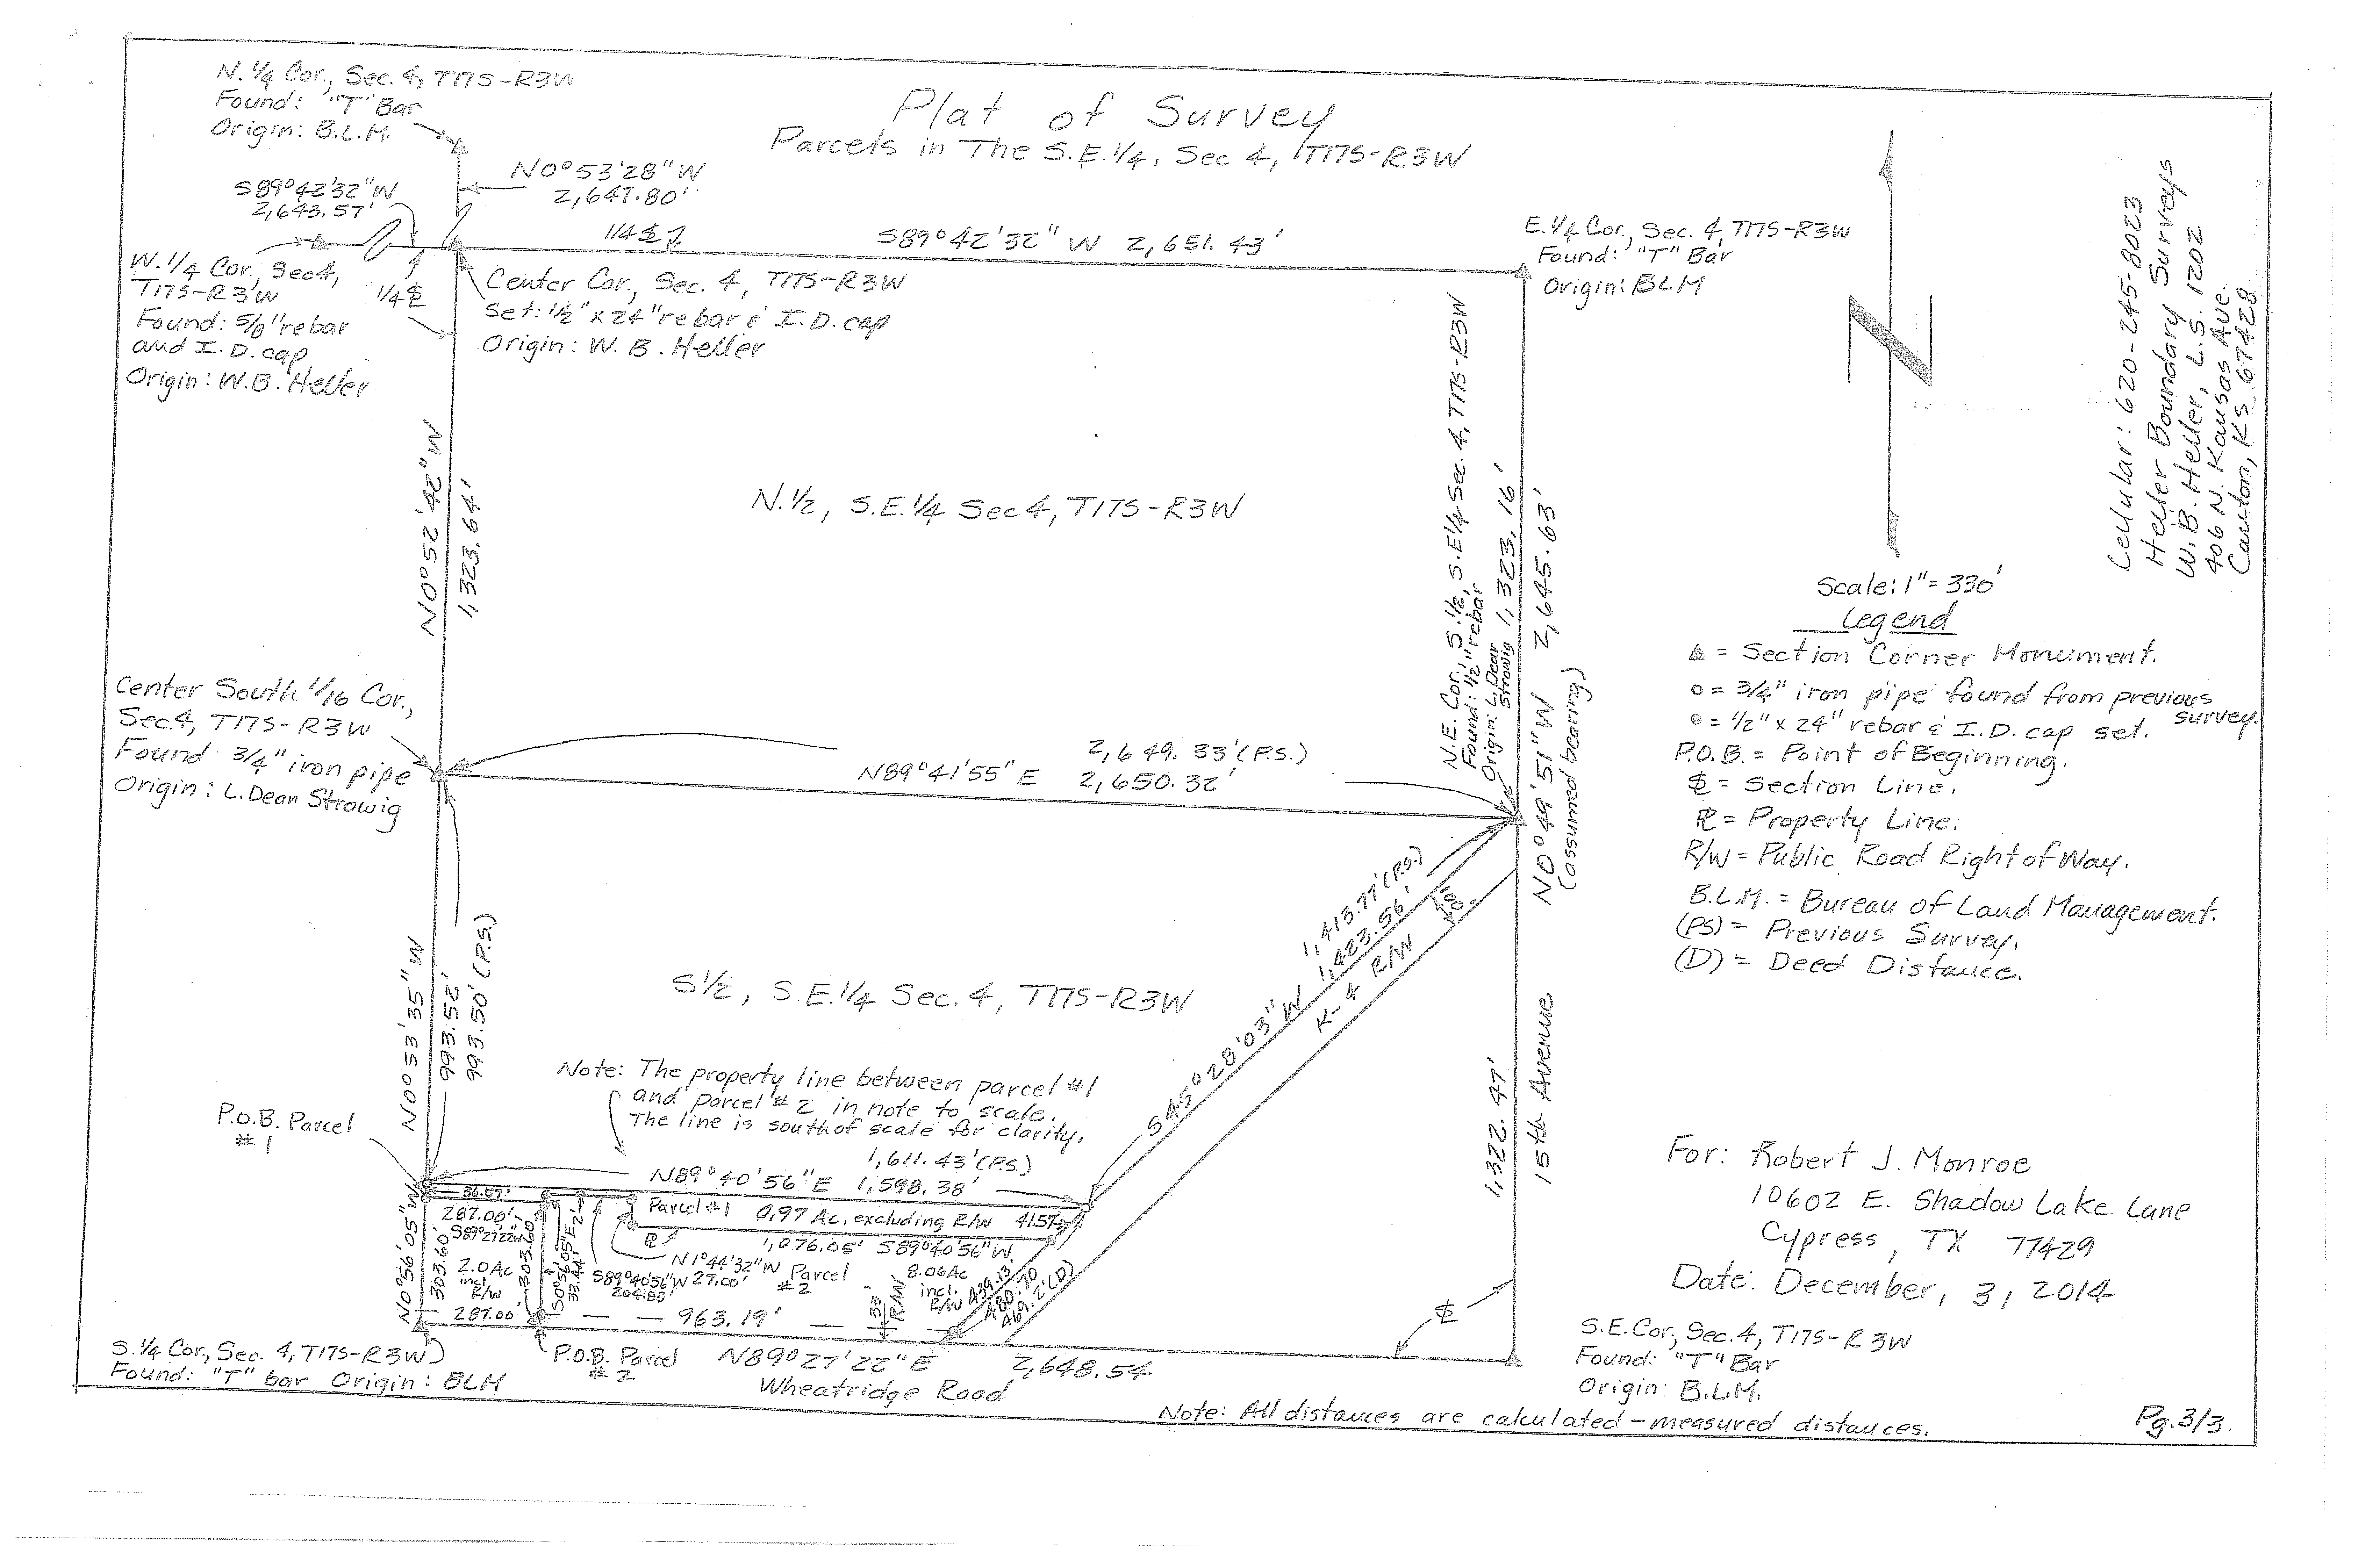 Plat of Survey
Parcels in The S.E.1/4, Sec 4, T17S-R3W
N. 1/4 Cor., Sec. 4, T17S-R3W
Found: "T" Bar
Origin: B.L.M.
N0°53'28"W
2,647.80'
S89°42'32"W
2,643.57'
W. 1/4 Cor., Sec 4,
T17S-R3W
Found: 5/8" rebar
and I.D. cap
Origin: W.B. Heller
1/4
1/4
S89°42'32" W 2,651.43'
Center Cor., Sec. 4, T17S-R3W
Set: 1/2" x 24" rebar & I.D. cap
Origin: W. B. Heller
E. 1/4 Cor., Sec. 4, T17S-R3W
Found: "T" Bar
Origin: BLM
Cellular: 620-245-8023
Heller Boundary Surveys
W. B. Heller, L.S. 1202
406 N. Kansas Ave.
Canton, KS 67428
N0°52'42"W
1,323.64'
N.1/2, S.E.1/4 Sec 4, T17S-R3W
N.E. Cor., S.1/2, S.E1/4 Sec. 4, T17S-R3W
Found: 1/2" rebar
Origin: L. Dean
Strowig
1,323.16'
N0°49'51"W 2,645.63'
(assumed bearing)
Scale: 1" = 330'
Legend
= Section Corner Monument.
o = 3/4" iron pipe found from previous
survey.
= 1/2" x 24" rebar & I.D. cap set.
P.O.B. = Point of Beginning.
= Section Line.
PL = Property Line.
R/W = Public Road Right of Way.
B.L.M. = Bureau of Land Management.
(PS) = Previous Survey.
(D) = Deed Distance.
Center South 1/16 Cor.,
Sec.4, T17S-R3W
Found 3/4" iron pipe
Origin: L. Dean Strowig
2,649.33' (P.S.)
N89°41'55" E 2,650.32'
N0°53'35"W
993.52'
993.50' (P.S.)
S1/2, S.E.1/4 Sec. 4, T17S-R3W
1,413.77' (P.S.)
S45°28'03"W 1,423.56'
K-4 R/W
1,322.47'
15th Avenue
Note: The property line between parcel #1
and parcel #2 in note to scale.
The line is south of scale for clarity.
P.O.B. Parcel
#1
1,611.43' (P.S.)
N89°40'56"E 1,598.38'
36.57'
Parcel #1 0.97 Ac. excluding R/W 41.57
287.00'
S89°27'22"W
PL
1,076.05' S89°40'56"W
N1°44'32"W
27.00'
S89°40'56"W
204.83'
Parcel
#2
8.06Ac
incl.
R/W
N0°56'05"W
303.60'
2.0 Ac
incl.
R/W
303.60
S0°56'05"E
33.44'
33
R/W
439.13'
480.70
469.2'(D)
287.00'
963.19'
S.1/4 Cor., Sec. 4, T17S-R3W
Found: "T" bar Origin: BLM
P.O.B. Parcel
#2
N89°27'22"E 2,648.54
Wheatridge Road
For: Robert J. Monroe
10602 E. Shadow Lake Lane
Cypress, TX 77429
Date: December, 3, 2014
S.E. Cor, Sec. 4, T17S-R3W
Found: "T" Bar
Origin: B.L.M.
Note: All distances are calculated-measured distances.
Pg. 3/3.